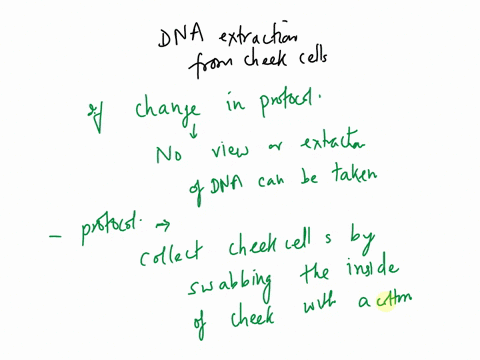 DNA extraction
from cheek cells
if change in protocol.
↓
No view or extractn
of DNA can be taken
- protocol. →
collect cheek cells by
swabbing the inside
of cheek with a